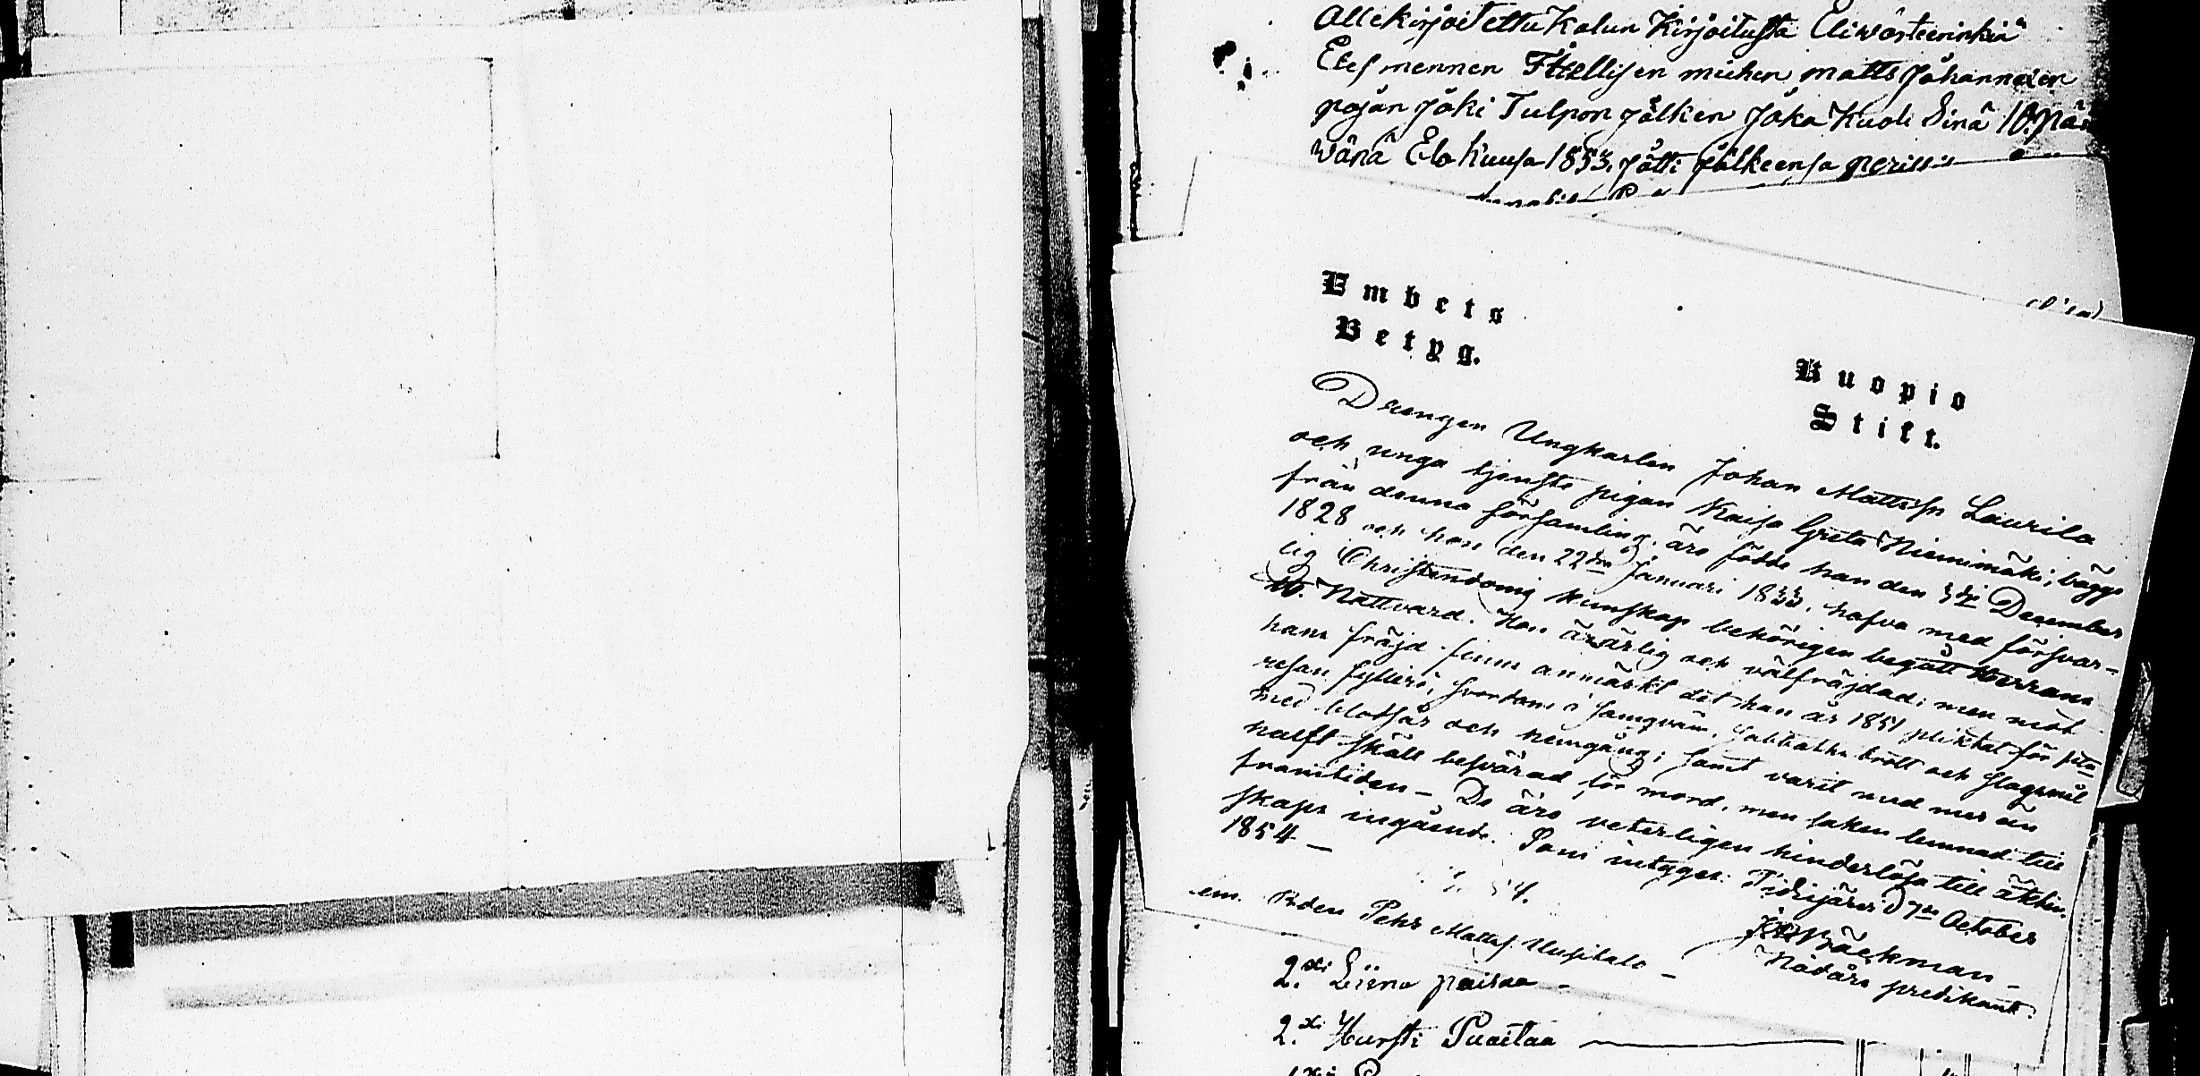 Allekirjoitettu Kalun Kirjoitusta Eliwärteerinkiä
Edesmennen Itellisen miehen matts Johannexen
pojan Joki Tulpon jälken Joka Kuoli Sinä 10. päi
wänä Elo Kuusa 1853. Jätti jälkeensa
Embets
Betyg.
Kuopio
Stift.
Drengen Ungkarlen Johan Mattsson Laurila
och unga tjenste pigan Kaisa Greta Niemimäki, bägge
från denna församling, äro födde han den December
1828 och hon den 22dra Januari 1833, hafva med försvar-
lig Christendoms kunskap behörigen begått Herrans
H. Nattvard. Hon är ärlig och välfräjdad; men uti
hans fräjd finns anmärkt det han år 1851 pliktat för
resan fylleri, svordom i samqväm, sabbaths brott och slagsmål
med blodsår och hemgång; samt varit med mer än
halft skäl besvärad för mord, men saken lemnad till
framtiden – De äro veterligen hinderlösa till äkten-
skaps ingående. Som intygar. Idijärvi d 7de October
1854 –
Bäckman –
Nådårs predikant.
Pehr Matts. Uusitalo –
2.xi Liina paitaa –
2.xi Hursti Puaitaa